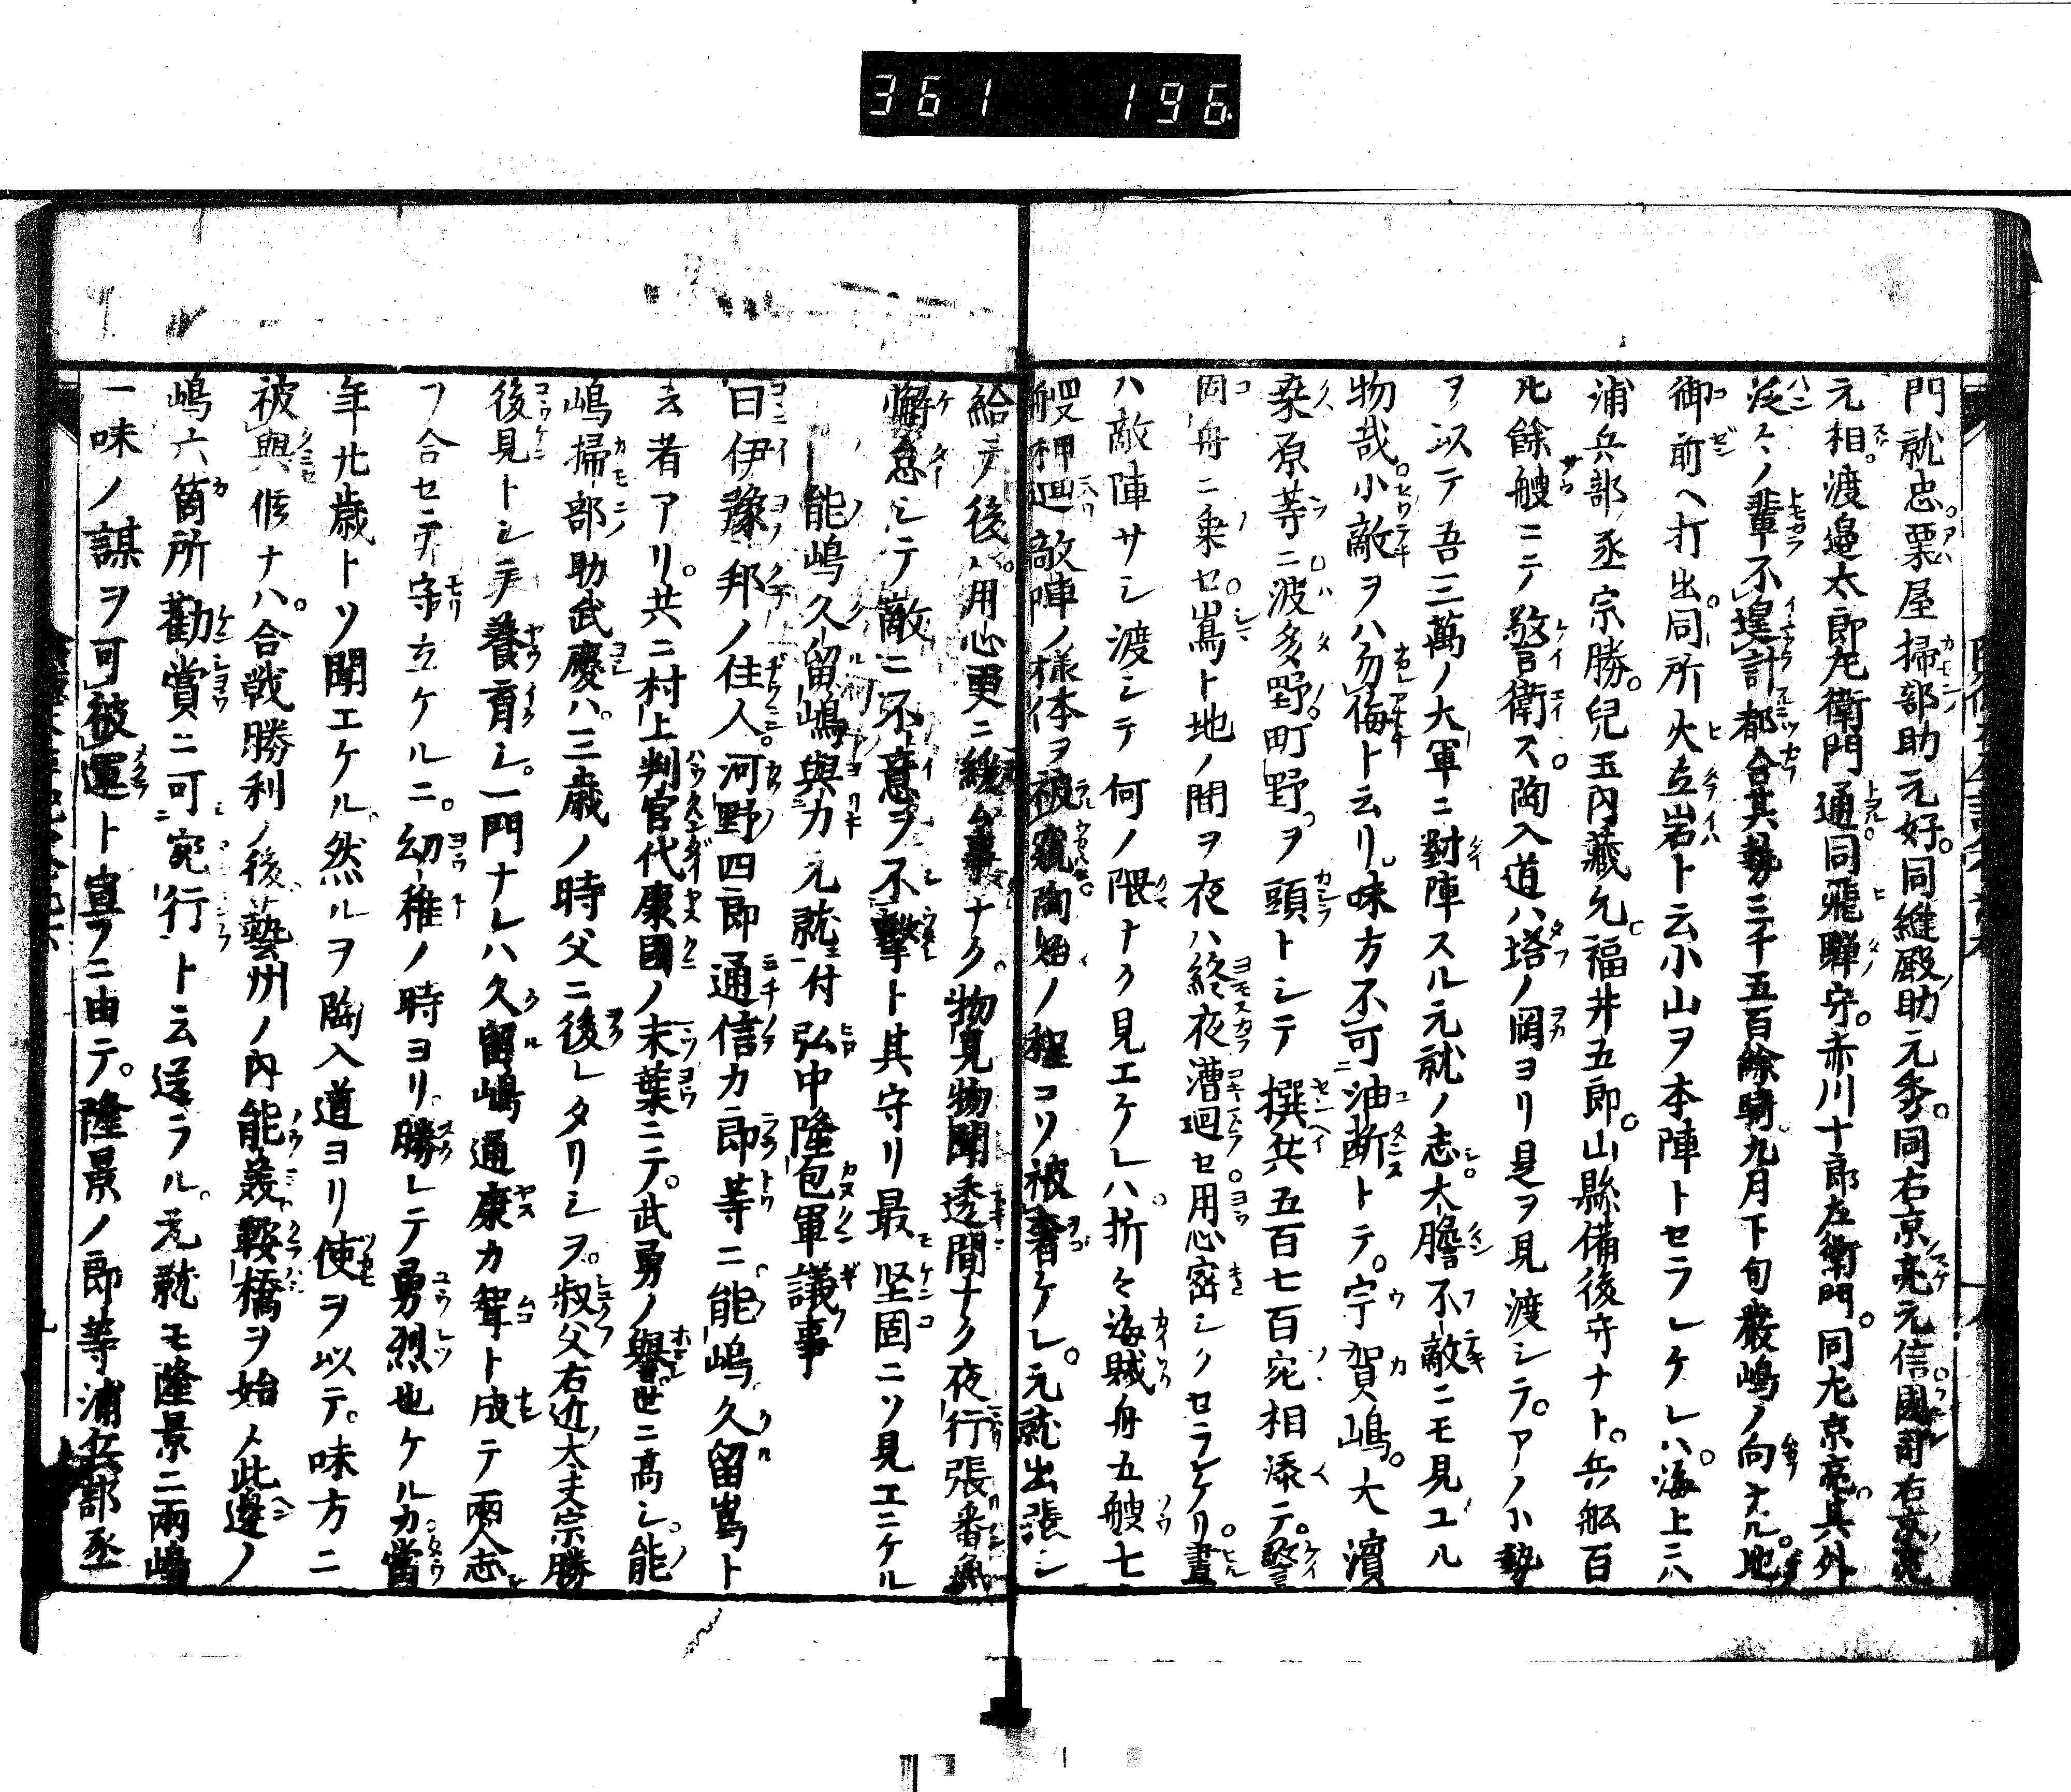 361 196
門就忠。粟屋掃部助元好。同縫殿助元秀。同右京亮元信國司右京亮
元相。渡邉太郎左衛門通同飛騨守。赤川十郎左衛門。同左京亮其外
泛々ノ輩不遑計都合其勢三千五百餘騎九月下旬嚴嶋ノ向ナル。地
御前ヘ打出。同所火立岩ト云小山ヲ本陣トセラレケレハ。海上ニハ
浦兵部丞宗勝。兒玉内藏允。福井五郎。山縣備後守ナト。兵舩百
卅餘艘ニテ警衛ス。陶入道ハ塔ノ岡ヨリ是ヲ見渡シテ。アノ小勢
ヲ以テ吾三萬ノ大軍ニ對陣スル元就ノ志大膽不敵ニモ見ユル
物哉。小敵ヲハ勿侮ト云リ。味方不可油断トテ。宇賀嶋。大濱
桒原等ニ波多野町野ヲ頭トシテ撰兵五百七百宛相添テ。警
固舟ニ乗セ。嶌ト地ノ間ヲ夜ハ終夜漕廻セ用心密シクセラレケリ。晝
ハ敵陣サシ渡シテ何ノ隈ナク見エケレハ。折々海賊舟五艘七
艘押廻敵陣ノ様体ヲ被窺陶ノ程コソ被著ケレ。元就出張シ
給テ後ハ。用心更ニ緩ム事ナク。物見物聞透間ナク夜行張番無
懈怠シテ敵ニ不意ヲ不撃ト其守リ最堅固ニソ見エニケル
能嶋久留嶋與力元就付弘中隆包軍議事
曰伊豫邦ノ住人河野四郎通信カ郎等ニ能嶋久留嶌ト
云者アリ。共ニ村上判官代康國ノ末葉ニテ。武勇ノ譽世ニ高シ。能
嶋掃部助武慶ハ。三歳ノ時父ニ後レタリシヲ。叔父右近太夫宗勝
後見トシテ養育シ。一門ナレハ久留嶋通康カ聟ト成テ兩人志
ヲ合セテ守立ケルニ。幼稚ノ時ヨリ勝レテ勇烈也ケルカ。當
年廿歳トソ聞エケル。然ルヲ陶入道ヨリ使ヲ以テ。味方ニ
被與候ナハ。合戦勝利ノ後藝州ノ内能義鞍橋ヲ始メ此邊ノ
嶋六箇所勸賞ニ可宛行ト云送ラル。元就モ隆景ニ兩嶋
一味ノ謀ヲ可被運ト宣フニ由テ。隆景ノ郎等浦兵部丞